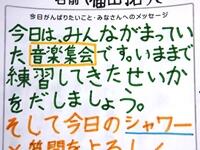 今日がんばりたいこと・みなさんへのメッセージ
今日は、みんながまってい
た音楽集会です。いままで
練習してきたせいか
をだしましょう。
そして今日のシャワー
質問をよろしく